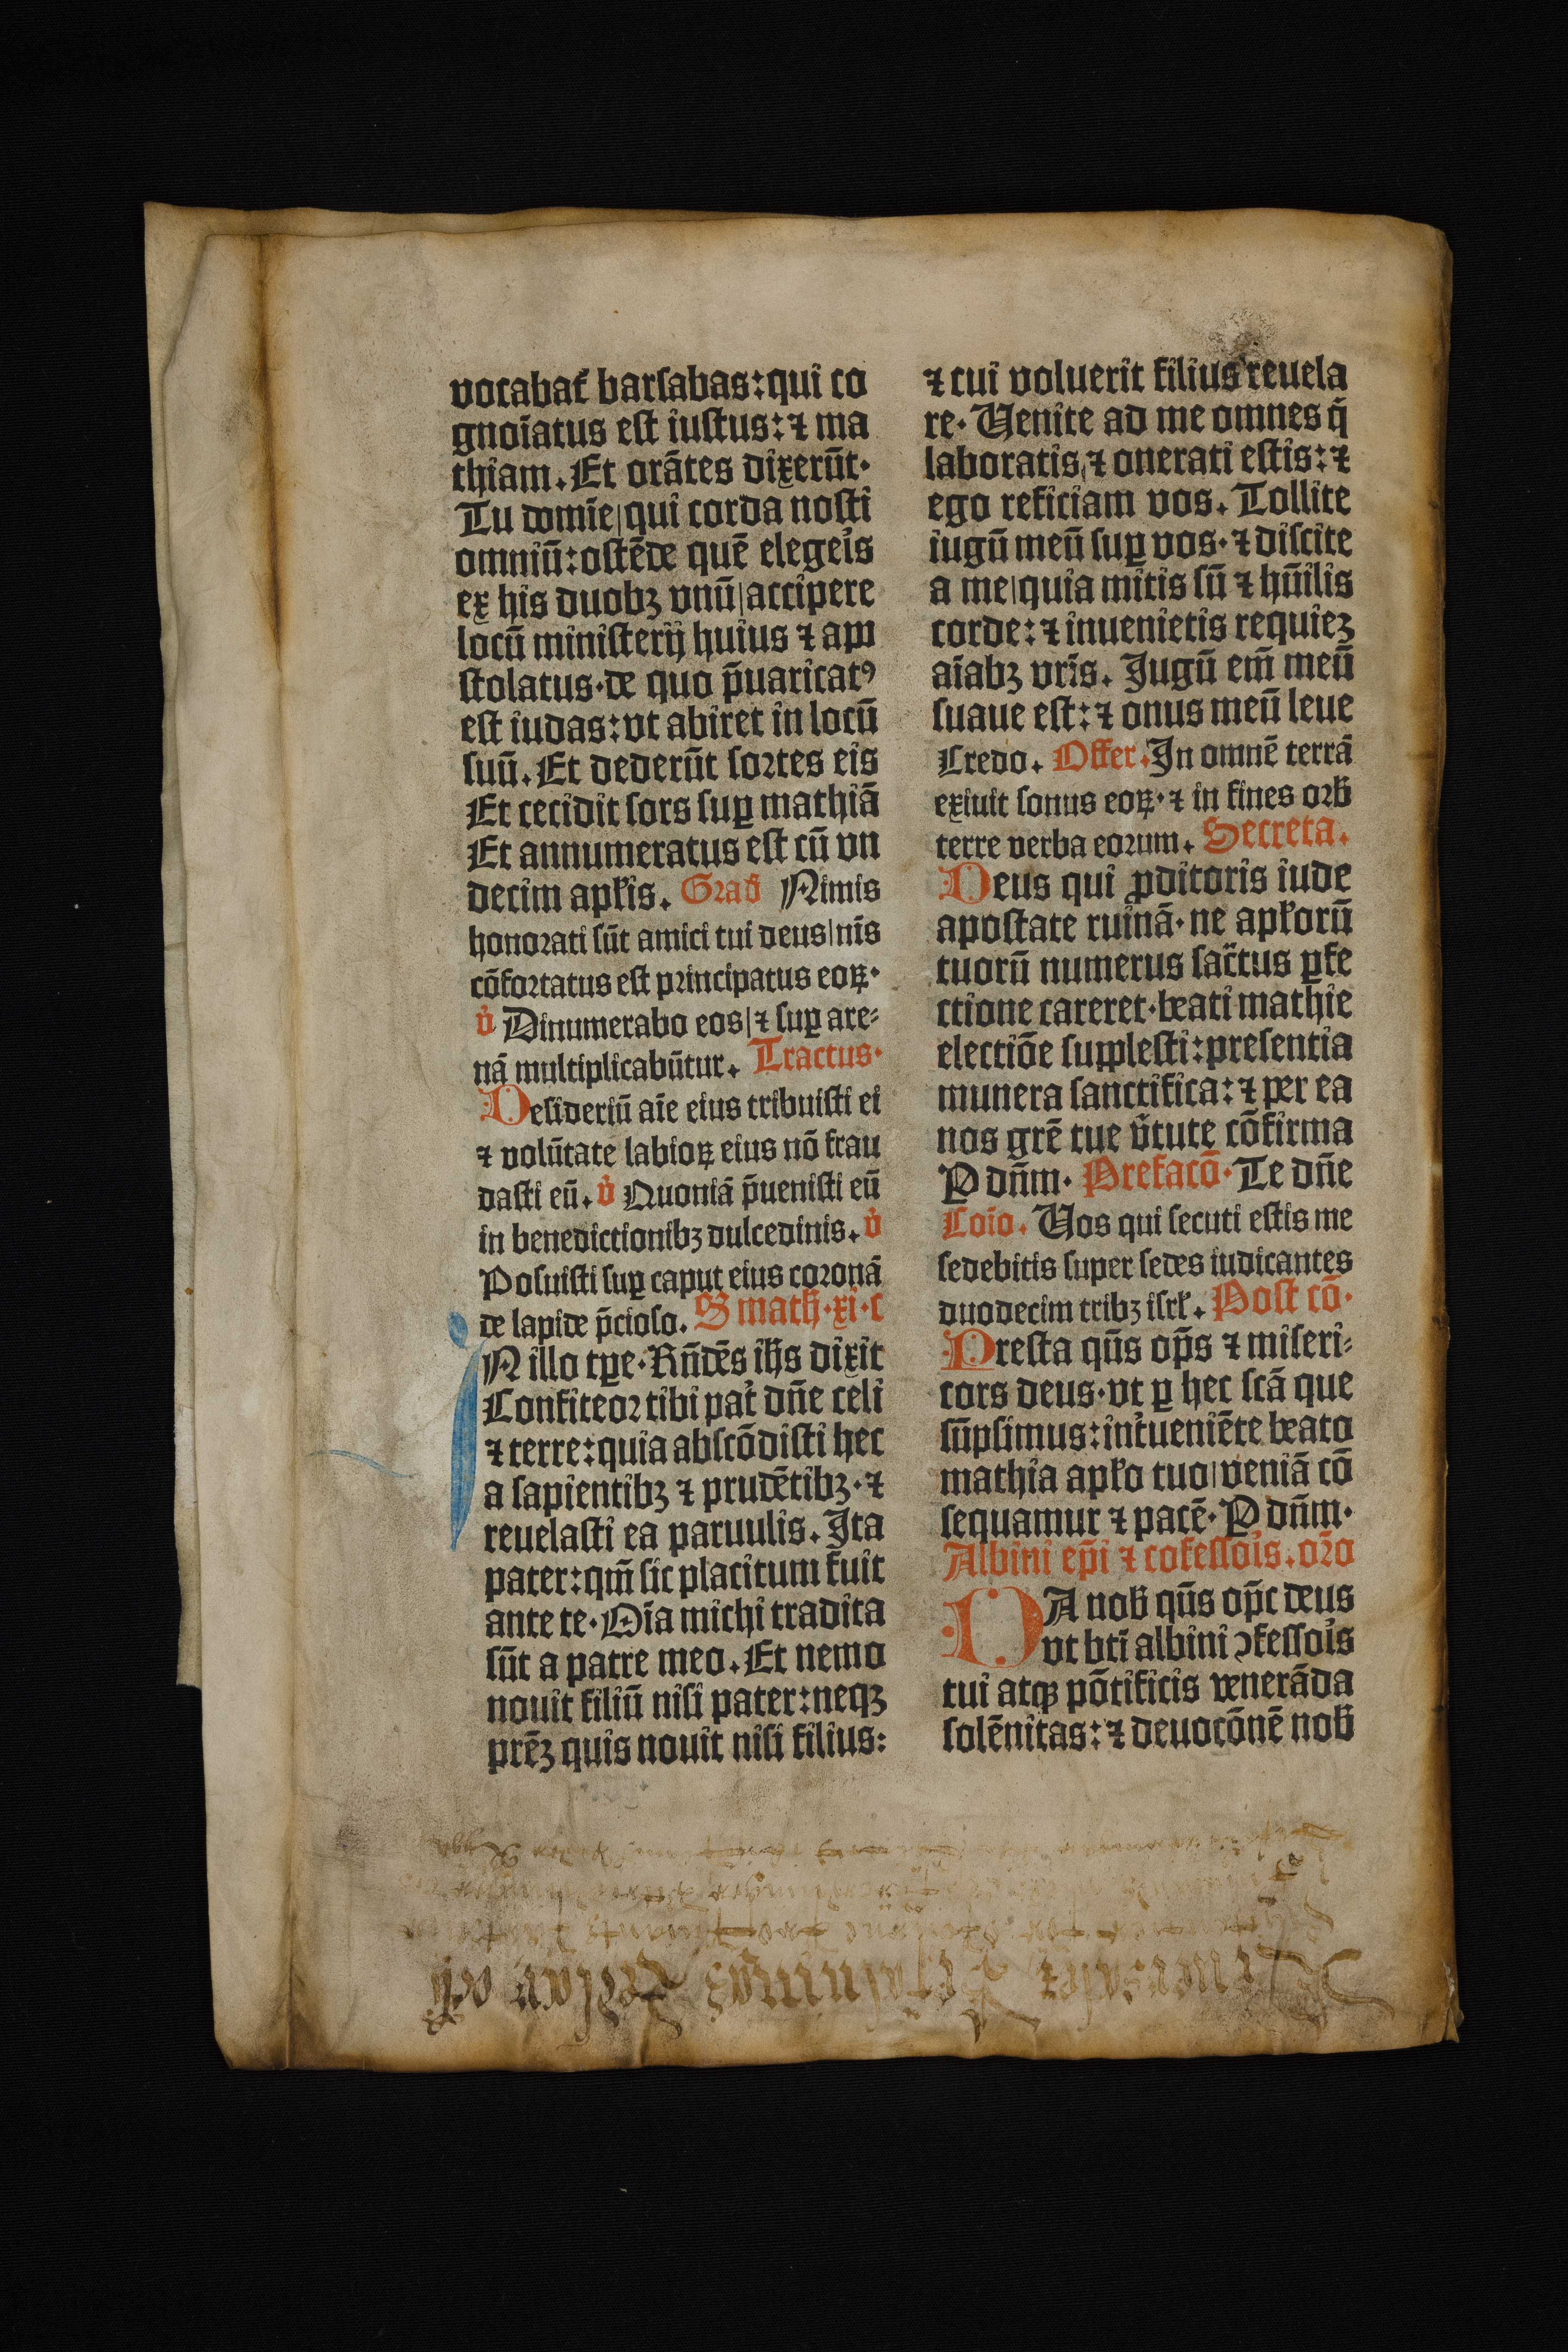 vocabat᷑ barsabas: qui co
gnoīatus est iustus: ⁊ ma
thiam. Et orātes dixerūt.
Tu domīe| qui corda nosti
omniū: ostēde quē elegeīs
ex his duobꝫ vnū| accipere
locū ministerij huius ⁊ apo
stolatus· de quo p̄uaricatꝰ
est iudas: vt abiret in locū
suū. Et dederūt sortes eis
Et cecidit sors suꝑ mathiā
Et annumeratus est cū vn
decim apl̓is. Grad̓ Nimis
honorati sūt amici tui deus| nīs
cōfortatus est principatus eoꝝ·
v̓ Dinumerabo eos| ⁊ suꝑ are⸗
nā multiplicabūtur. Tractus·
Desideriū aīe eius tribuisti ei
⁊ volūtate labioꝝ eius nō frau
dasti eū. v̓ Quoniā p̄uenisti eū
in benedictionibꝫ dulcedinis. v̓
Posuisti suꝑ caput eius coronā
de lapide p̄cioso. S math̓·xi·c
IN illo tꝑe· Rn̄dēs ih̄s dixit
Confiteor tibi pat̓ dn̄e celi
⁊ terre: quia abscōdisti hec
a sapientibꝫ ⁊ prudētibꝫ· ⁊
reuelasti ea paruulis. Ita
pater: qm̄ sic placitum fuit
ante te· Oīa michi tradita
sūt a patre meo. Et nemo
nouit filiū nisi pater: neqꝫ
prēꝫ quis nouit nisi filius:
⁊ cui voluerit filius reuela
re· Uenite ad me omnes q̄
laboratis| ⁊ onerati estis: ⁊
ego reficiam vos. Tollite
iugū meū suꝑ vos· ⁊ discite
a me| quia mitis sū ⁊ hūilis
corde: ⁊ inuenietis requieꝫ
aīabꝫ vrīs. Jugū em̄ meū
suaue est: ⁊ onus meū leue
Credo. Offer. In omnē terrā
exiuit sonus eoꝝ· ⁊ in fines orb̓
terre verba eorum. Secreta.
Deus qui ꝓditoris iude
apostate ruinā· ne apl̓orū
tuorū numerus sac̄tus ꝑfe
ctione careret· beati mathie
electiōe supplesti: presentia
munera sanctifica: ⁊ per ea
nos grē tue v̓tute cōfirma
P dn̄m· Prefacō· Te dn̄e
Coīo. Uos qui secuti estis me
sedebitis super sedes iudicantes
duodecim tribꝫ isrl̓. Post cō·
Presta qūs op̄s ⁊ miseri⸗
cors deus· vt ꝑ hec scā que
sūpsimus: int̓ueniēte beato
mathia apl̓o tuo| veniā cō
sequamur ⁊ pacē· P dn̄m·
Albini ep̄i ⁊ cofessoīs. or̄o
DA nob̓ qūs op̄c deus
vt btī albini ↄfessoīs
tui atqꝫ pōtificis venerāda
solēnitas: ⁊ deuocōnē nob̓